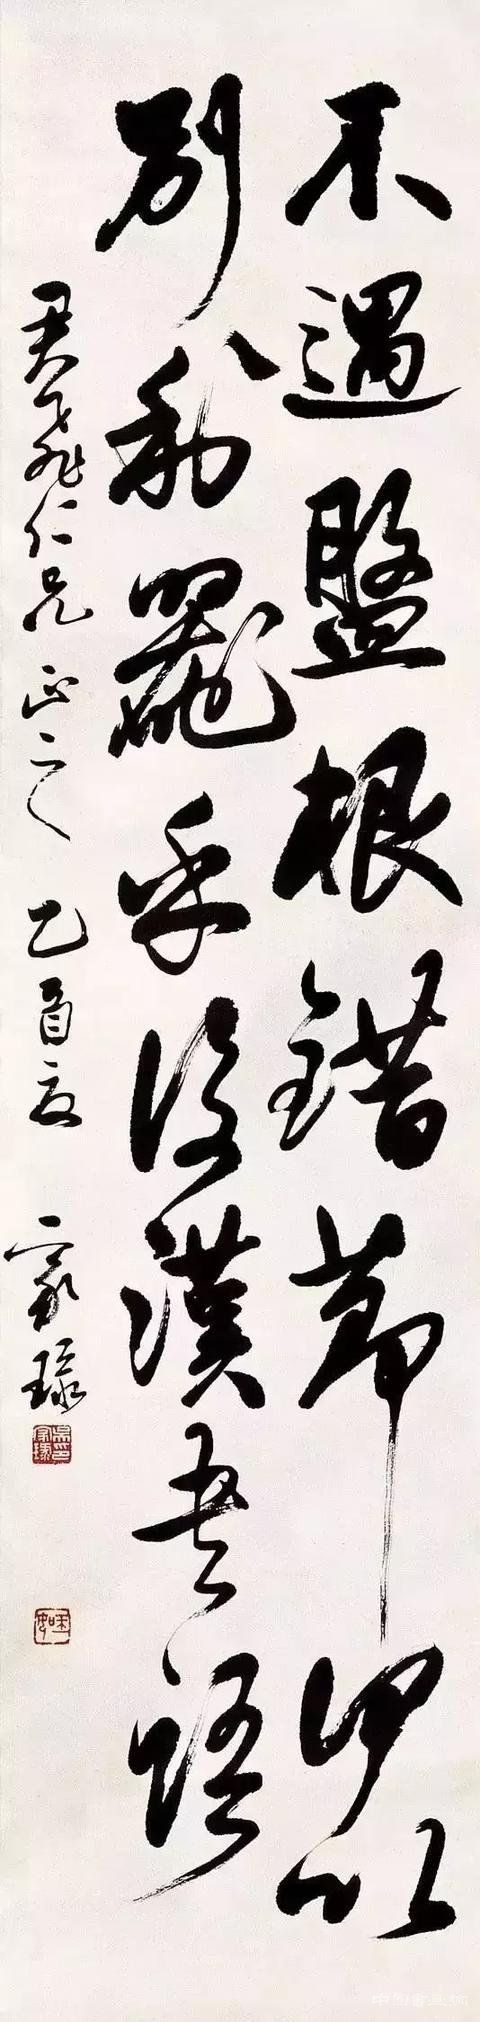 不遇盤根錯節何以
別利器乎後漢書語
君飛仁兄正之 乙酉夏 家琭